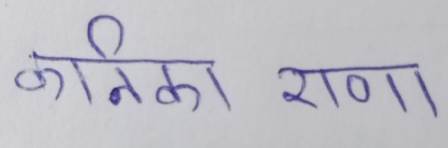 कनिका राणा